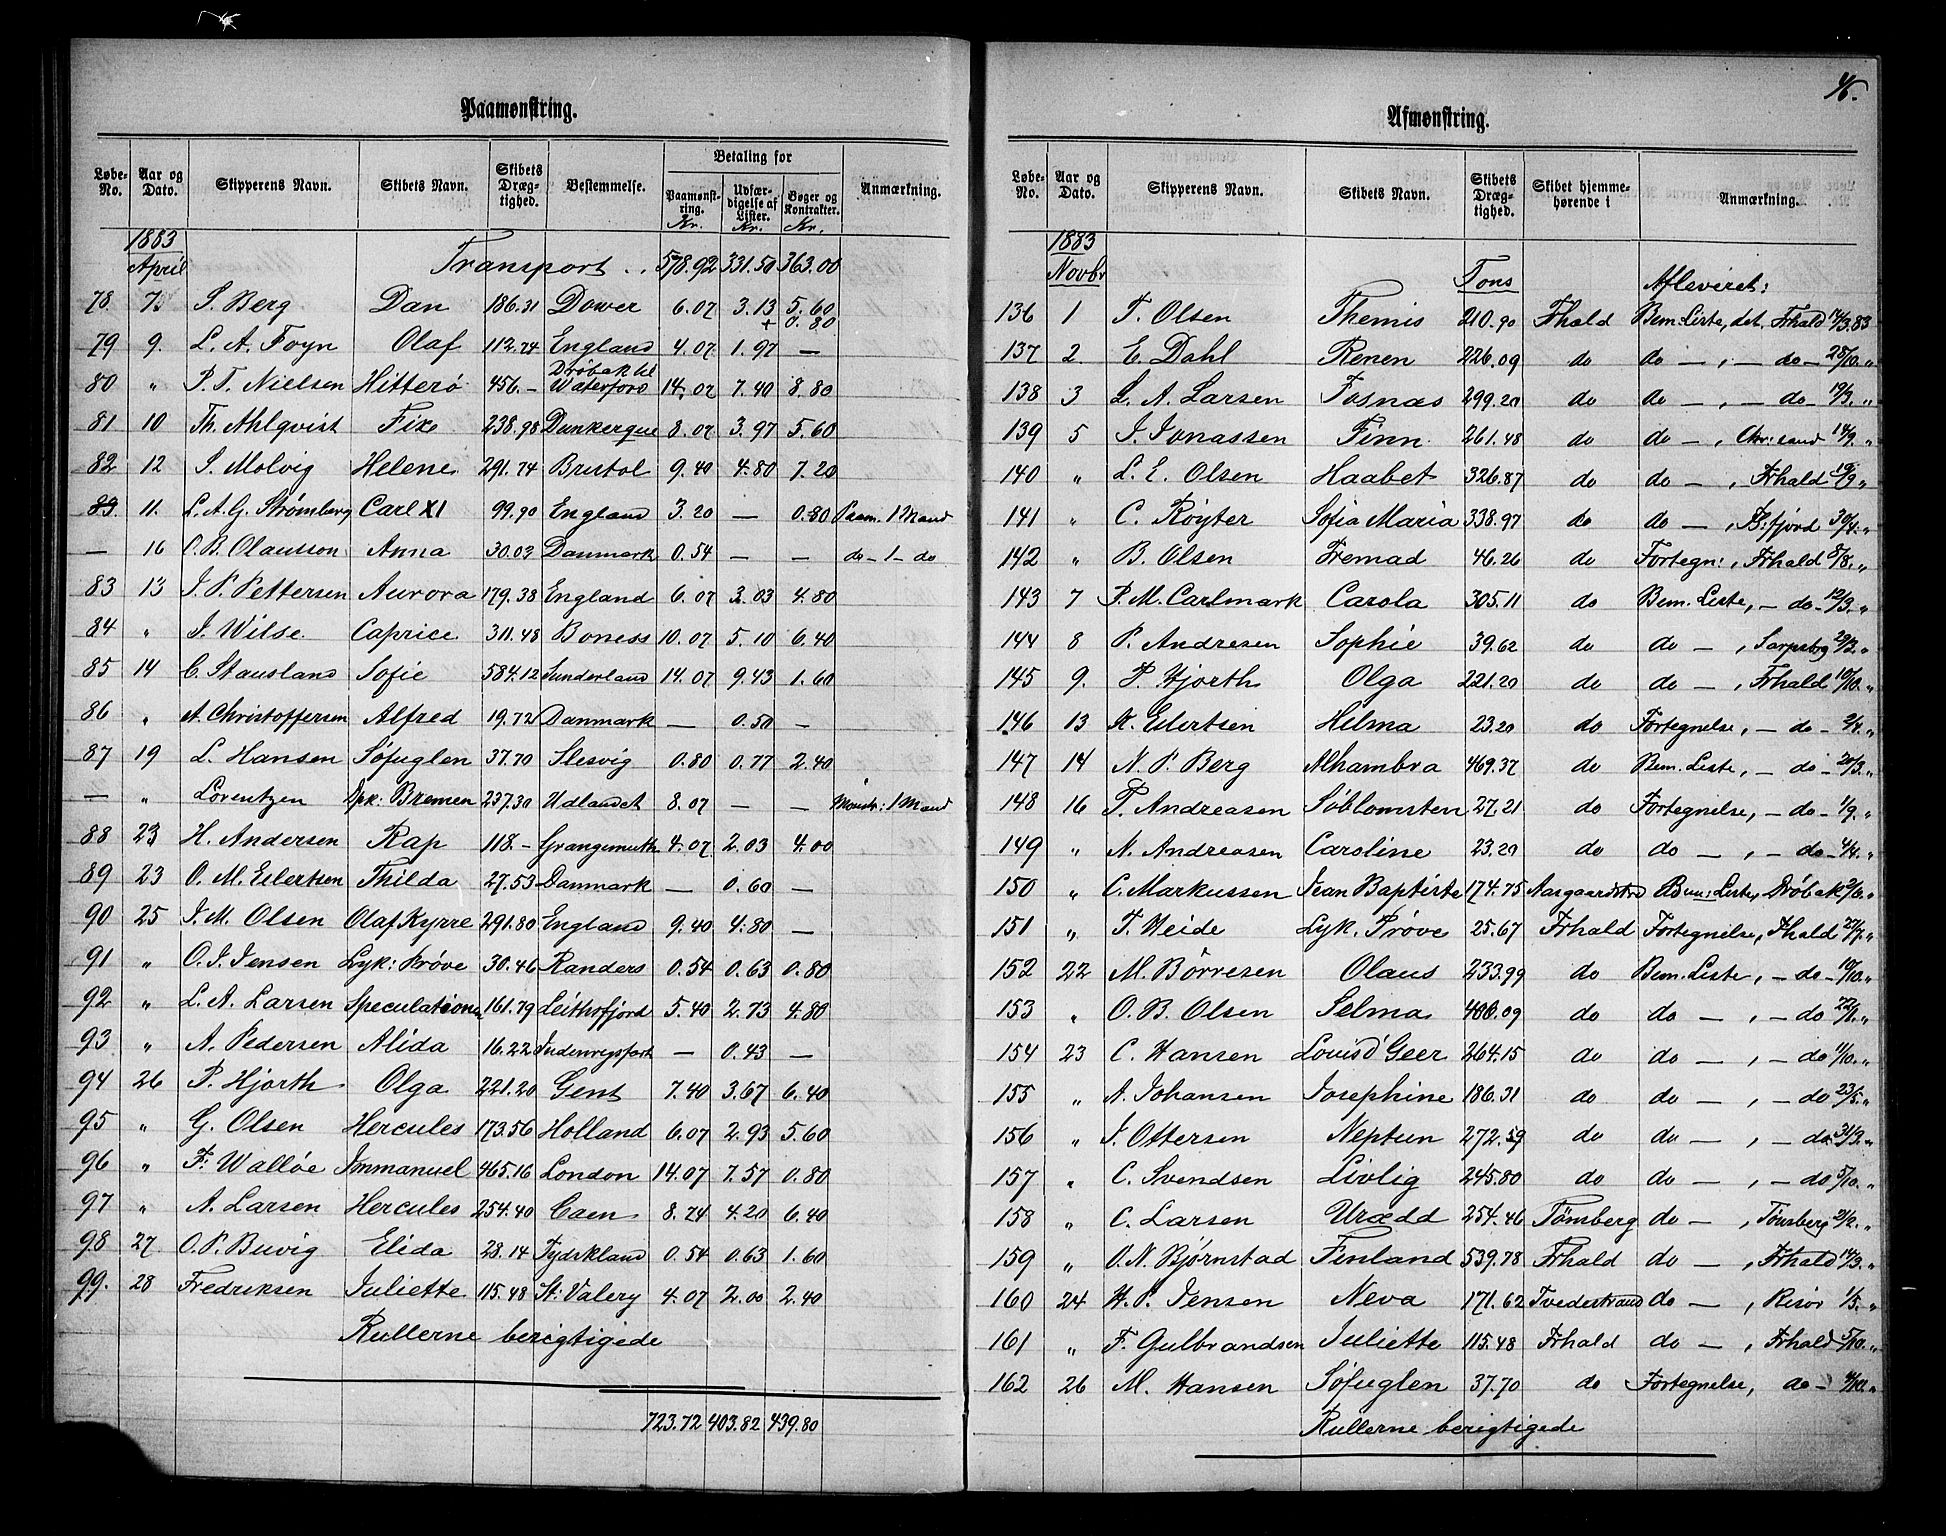 Paamønstring.
Løbe-No. Aar og Dato. Skipperens Navn. Skibets Navn. Skibets Dræg-tighed. Bestemmelse. Betaling for Paamønst-ring. Kr. Udfær-digelse af Lister. Kr. Bøger og Kontrakter. Kr. Anmærkning.
1883
April Transport .. 578.92 331.50 363.00
78. 7 S. Berg Dan 186.31 Dower 6.07 3.13 5.60
+ 0.80
79 9. L. A. Foyn Olaf 112.74 England 4.07 1.97 —
80 " P. T. Nielsen Hitterö 456.— Dröbak til Waterford 14.07 7.40 8.80
81 10 Th. Ahlqvist Fix 238.98 Dunkerque 8.07 3.97 5.60
82 12 S. Molvig Helene 291.74 Bristol 9.40 4.80 7.20
83. 11. L. A. G. Strömberg Carl XI 99.90 England 3.20 — 0.80 Paam. 1 Mand
— 16 O. B. Olausson Anna 30.02 Danmark 0.54 — — do - 1 - do
83 13 J. P. Pettersen Aurora 179.38 England 6.07 3.03 4.80
84 " J. Wilse Caprice 311.48 Boness 10.07 5.10 6.40
85 14 C. Stausland Sofie 584.12 Sunderland 14.07 9.43 1.60
86 " A. Christoffersen Alfred 19.72 Danmark — 0.50 —
87 19 L. Hansen Söfuglen 37.70 Slesvig 0.80 0.77 2.40
— " Lorentzen Dpk: Bremen 237.30 Udlandet 8.07 — — Mönstr: 1 Mand
88 23 H. Andersen Rap 118.— Grangemuth 4.07 2.03 4.00
89 23 O. M. Eilertsen Thilda 27.53 Danmark — 0.60 —
90 25 J. M. Olsen Olaf Kyrre 291.80 England 9.40 4.80 —
91 " O. J. Jensen Lyk: Pröve 30.46 Randers 0.54 0.63 0.80
92 " L. A. Larsen Speculation 161.79 Leithsfjord 5.40 2.73 4.80
93 " A. Pedersen Alida 16.22 Indenrigsfart — 0.43 —
94 26 P. Hjorth Olga 221.20 Gent 7.40 3.67 6.40
95 " G. Olsen Hercules 173.56 Holland 6.07 2.93 5.60
96 " F. Wallöe Immanuel 465.16 London 14.07 7.57 0.80
97 " A. Larsen Hercules 254.40 Caen 8.74 4.20 6.40
98 27 O. P. Buvig Elida 28.14 Tydskland 0.54 0.63 1.60
99. 28 Fredriksen Juliette 115.48 St. Valery 4.07 2.00 2.40
Rullerne berigtigede
723.72 403.82 439.80
46.
Afmønstring.
Løbe-No. Aar og Dato. Skipperens Navn. Skibets Navn. Skibets Dræg-tighed. Skibet hjemme-hørende i Anmærkning.
1883
Novbr Tons Afleviret:
136 1 T. Olsen Themis 210.90 Fhald Bem. Liste, det. Frhald 14/3.83
137 2. E. Dahl Renen 226.09 do do — , — do — 25/10. "
138 3 L. A. Larsen Fosnæs 299.20 do do — , — do 19/3. "
139 5 J. Jonassen Finn 261.48 do do — , Chr:sand 14/9. "
140 " L. E. Olsen Haabet 326.87 do do — , Frhald 19/9 "
141 " C. Röyter Sofia Maria 338.97 do do — , B.fjord 30/4. "
142 " B. Olsen Fremad 46.26 do Fortegn:, Frhald 8/8. "
143 7 P. M. Carlmark Carola 305.11 do Bem. Liste, — do — 12/3. "
144 8 P. Andresen Sophie 39.62 do do — , Sarpsbrg 29/3. "
145 9. P. Hjorth Olga 221.20 do do — , Frhald 10/10. "
146 13 K. Eilertsen Hilma 23.20 do Fortegnelse, — do — 2/4. "
147 14 N. P. Berg Alhambra 469.37 do Bem. Liste, — do — 20/3. "
148 16 T. Andreasen Söblomsten 27.21 do Fortegnelse, — do — 1/9. "
149 " N. Andreasen Caroline 23.29 do do — , — do — 4/4. "
150 " C. Markussen Jean Baptiste 174.75 Aasgaardstrd Bem: Liste, Dröbak 2/6. "
151 " T. Weide Lyk. Pröve 25.67 Frhald Fortegnelse, Fhald 27/7. "
152 22 M. Börresen Olaus 233.99 do Bem. Liste, — do — 10/10. "
153 " O. B. Olsen Selma 400.09 do do — , — do 22/1. "
154 23 C. Hansen Louis d'Geer 264.15 do do — , — do 11/10. "
155 " A. Johansen Josephine 186.31 do do — , — do 23/5. "
156 " J. Ottersen Neptun 272.59 do do — , — do 31/3. "
157 " C. Svendsen Livlig 245.80 do do — , — do 5/10. "
158 " C. Larsen Urædd 254.46 Tönsberg do — , Tönsberg 21/2. "
159 " O. N. Björnstad Finland 539.78 Frhald do — , Frhald 14/3. "
160 24 H. P. Jensen Neva 171.62 Tvedestrand do — , Risör 1/5. "
161 " F. Gulbrandsen Juliette 115.48 Frhald do — , Frhald 5/10. "
162 26 M. Hansen Söfuglen 37.70 do Fortegnelse, do — 4/10. "
Rullerne berigtigede